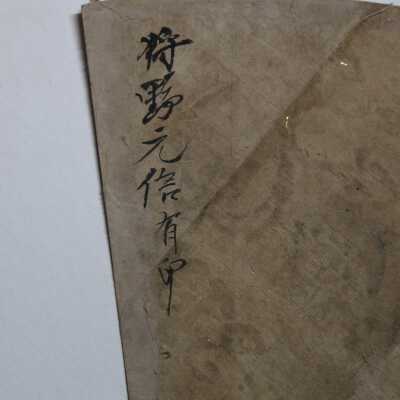 狩野元信有印